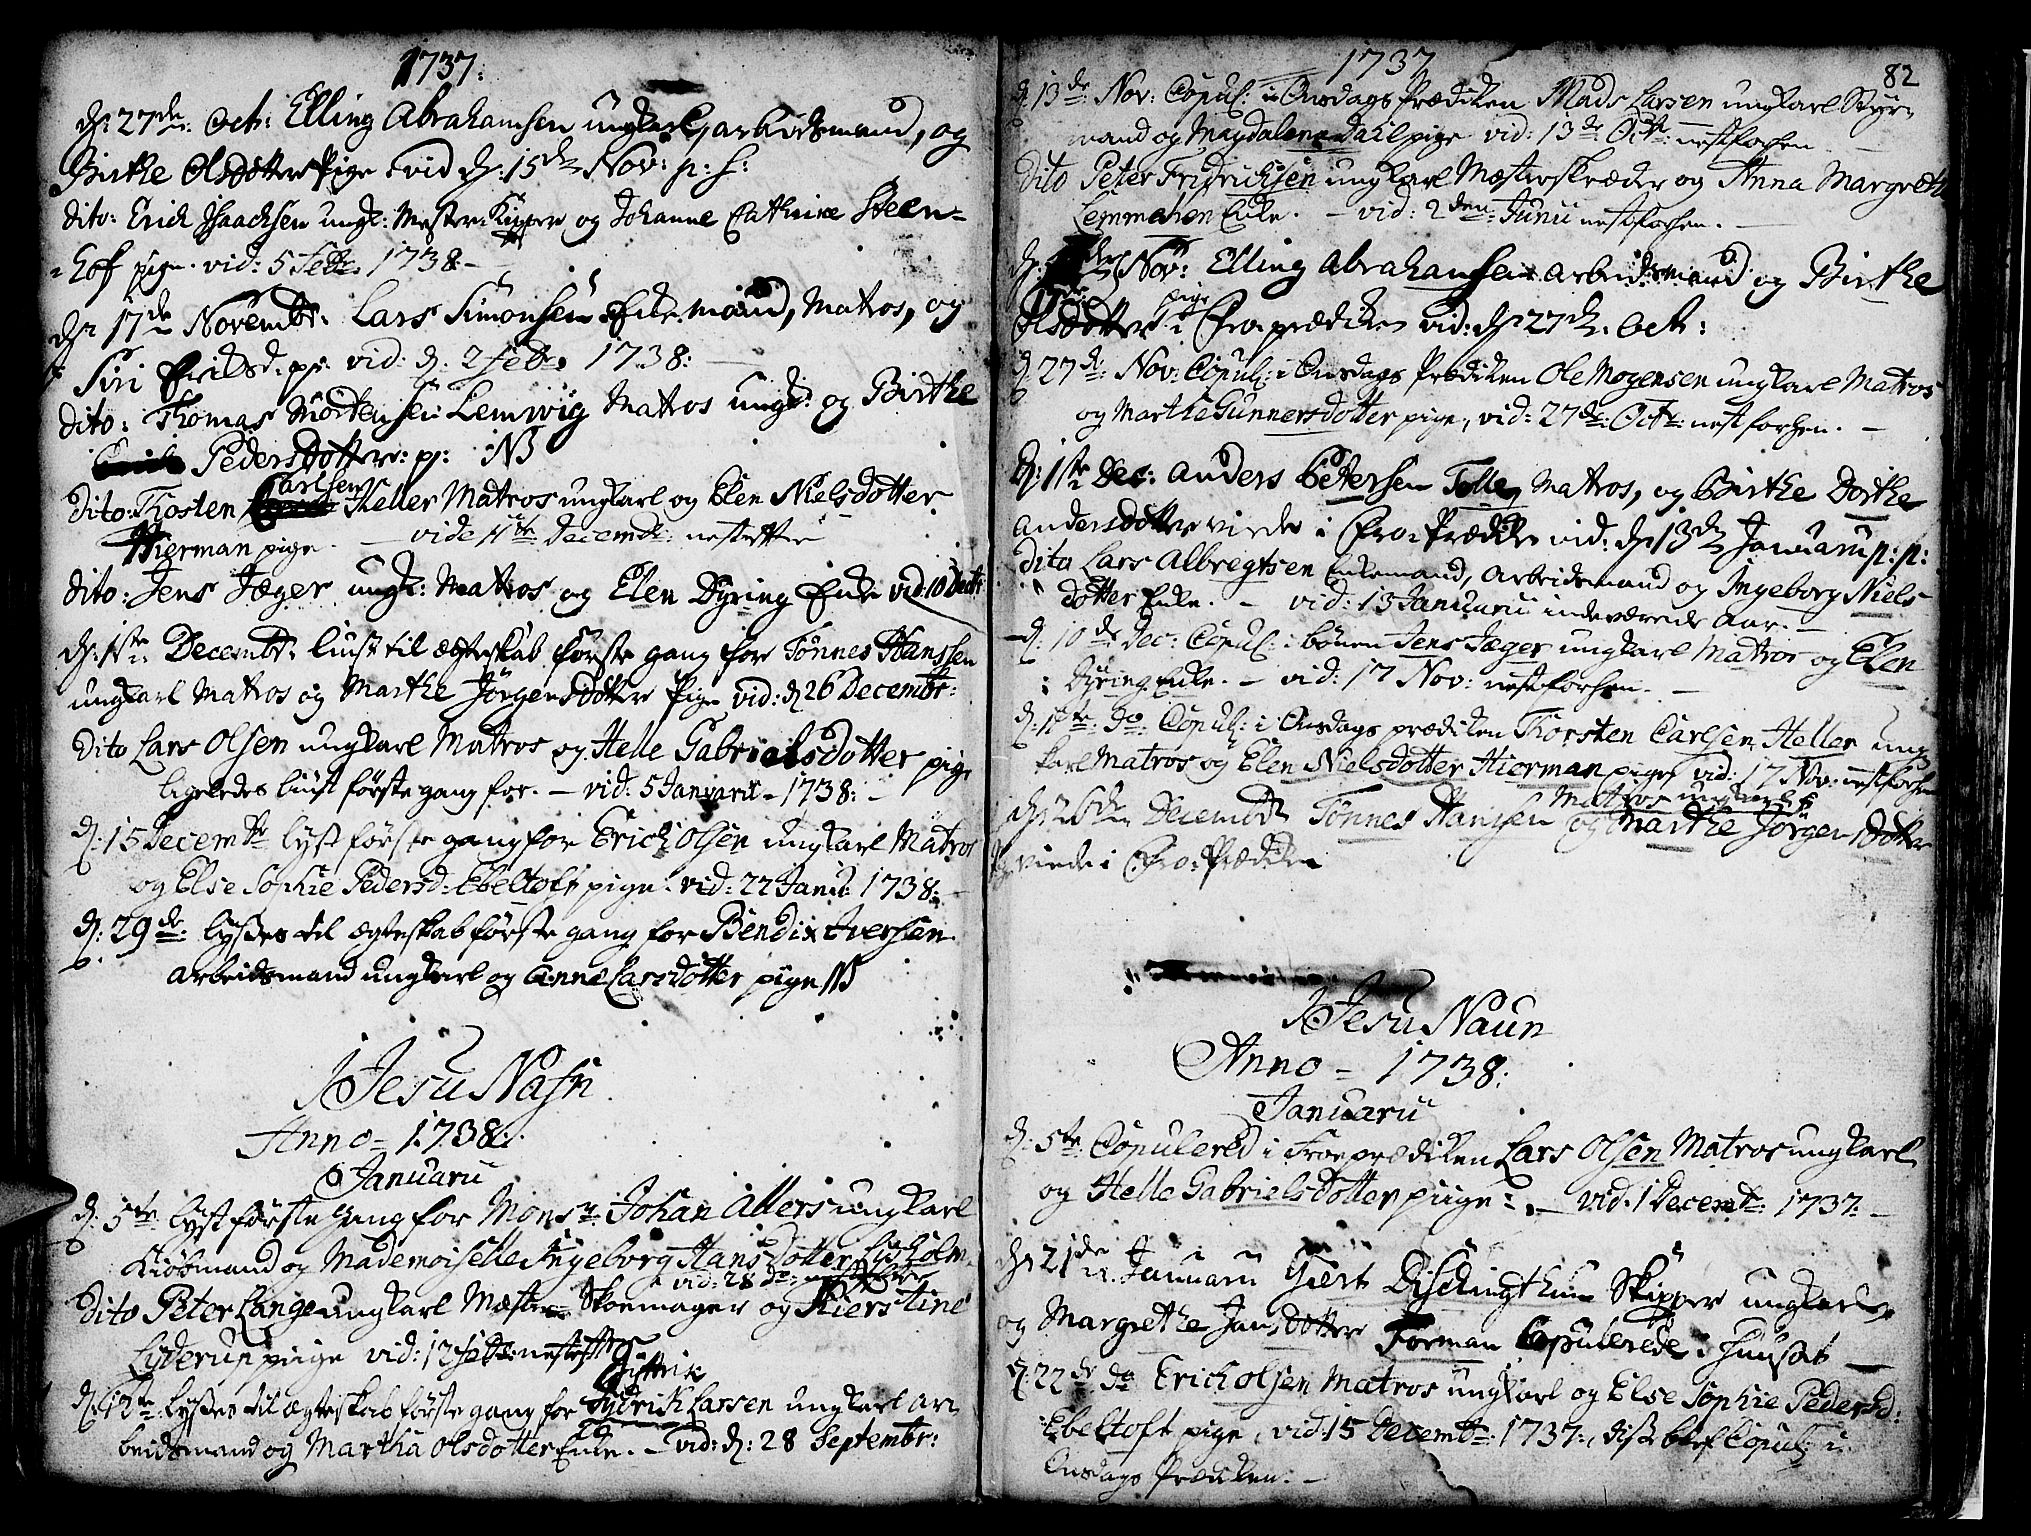 1737:
d: 27de Oct: Elling Abrahamsen ungkarl, arbeidsmand, og
Birthe Olsdotter Pige vid d: 15de Nov: p: s:
dito: Erich Isaachsen ungk: Mester: Kipper og Johanne Cathrine Steen-
-hof pige. vid: 5 Febr. 1738 -
d: 17de Novembr. Lars Simonsen Enkemand, Matros, og
Siri Erilsd: p: vid: d: 2 Febr. 1738: -
dito: Thomas Mortensen Lemwig Matros ungk: og Birthe
Pedersdotter: p: NB
dito: Thosten Carlsen Heller Matros ungkarl og Elen Nielsdotter
Hierman pige. - vide 11te Decembr: nestefter
dito: Jens Jæger ungk: Matros og Elen Dyring Enke vid: 10 Decbr
d: 1ste Decembr: liust til ægteskab første gang for Tønnes Hanssen
ungkarl Matros og Marthe Jørgensdotter Pige vid: d 26 Decembr:
dito Lars Olsen ungkarl Matros og Helle Gabrielsdotter pige
ligeledes liust første gang for. - vid: 5 Januarii - 1738: -
d: 15 Decembr lyst første gang for Erich Olsen ungkarl Matros
og Else Sophie Pedersd: Ebeltoft pige. vid: 22 Janu: 1738: -
d: 29de lystes til ægteskab første gang for Bendix Iversen
arbeidsmand ungkarl og Anne Larsdotter pige NB
I Jesu Nafn
Anno - 1738:
Januarii
d: 5te lyst første gang for Monsr: Johan Allers ungkarl
Kiøbmand og Mademoiselle Ingeborg Hansdotter Lysholm.
vid: 28 do:
dito Peter Lange ungkarl Mæster Skoemager og Kierstine
Lyderun piige vid: 12 Febr: nestefter
Fridrik
d: 12te lystes til ægteskab første gang for Larsen ungkarl ar-
beidsmand og Martha Olsdotter Enke. - vid: d: 28 Septembr:
1737
82
d: 13de Nov: Copul: i Onsdags Prædiken Mads Larsen ungkarl Styr-
mand og Magdalena Dahl pige vid: 13de Octr: nestforhen
dito Peter Fridrichsen ungkarl Mæsterskræder og Anna Margrethe
Lemmahen Enke. - vid: 2den Junii nestforhen. -
Nov: Elling Abrahamsen arbeidsmand og Birthe
pige
Olsdotter i Froeprædiken vid: d: 27de Oct:
d: 27de: Nov: Copul: i Onsdags Prædiken Ole Mogensen ungkarl Matros
og Marthe Gunnersdotter pige, vid: 27de: Octr: nestforhen. -
d: 1ste Dec: Anders Petersen Tolle, Matros, og Birthe Dorthe
Andersdotter viede i Froe: Prædiken vid: d: 13de Januarii p: p:
dito Lars Albregtsen Enkemand, Arbeidsmand og Ingeborg Niels-
dotter Enke. - vid: 13 Januarii indeværende Aar. -
d: 10de Dec: Copul: i bønen Jens Jæger ungkarl Matros og Elen
Dyring Enke. - vid: 17 Nov: nestforhen. -
d: 11te: do: Copul: i Onsdags prædiken Thorsten Carlsen Heller ung
karl Matros og Elen Nielsdotter Hierman pige vid: 17 Nov: nestforhen
Matros ungkarl
d: 26de Decembr Tønnes Hansen og Marthe Jørgensdotter
viede i Froe: Prædiken
I Jesu Naun
Anno - 1738:
Januarii
d: 5te: Copulered i Froeprædiken Lars Olsen Matros ungkarl
og Helle Gabrielsdotter piige: - vid: 1 Decembr: 1737: -
d: 21de Januarii Giert Skipper ungkarl
og Margrethe Jansdotter Forman Copulerede i Huuset -
d: 22de do Erich Olsen Matros ungkarl og Else Sophie Pedersd:
Ebeltoft pige, vid: 15 Decembr: 1737:, disse blef Copul: i
Onsdags Prædiken. -